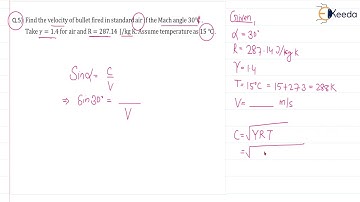 Q.5) Find the velocity of bullet fired in standard air if the Mach angle 30°.
Take γ = 1.4 for air and R = 287.14 J/kg K. Assume temperature as 15 °C.
Ekeeda
Given,
α = 30°
R = 287.14 J/kg K
γ = 1.4
T = 15°C = 15+273 = 288K
V = ____ m/s
Sinα = C/V
⇒ Sin30° = /V
C = √γRT
= √